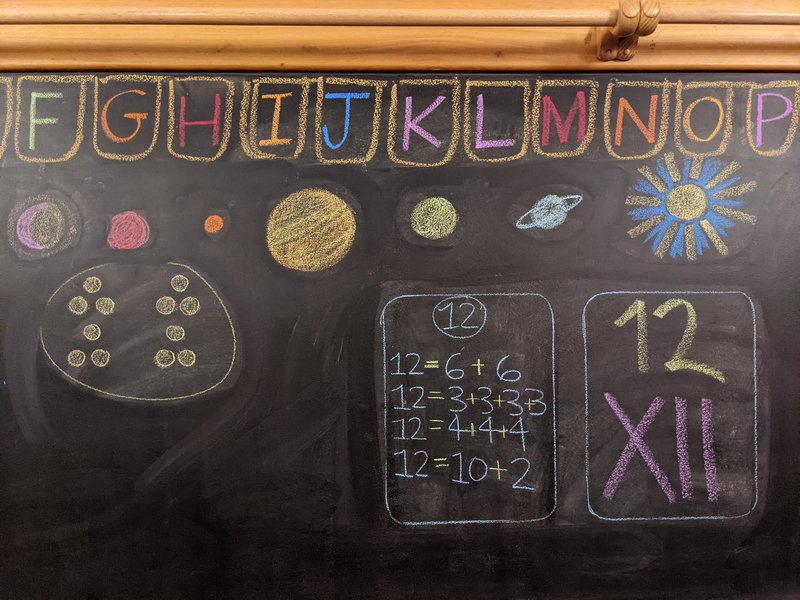 F G H I J K L M N O P
12
12=6+6
12=3+3+3+3
12=4+4+4
12=10+2
12
XII